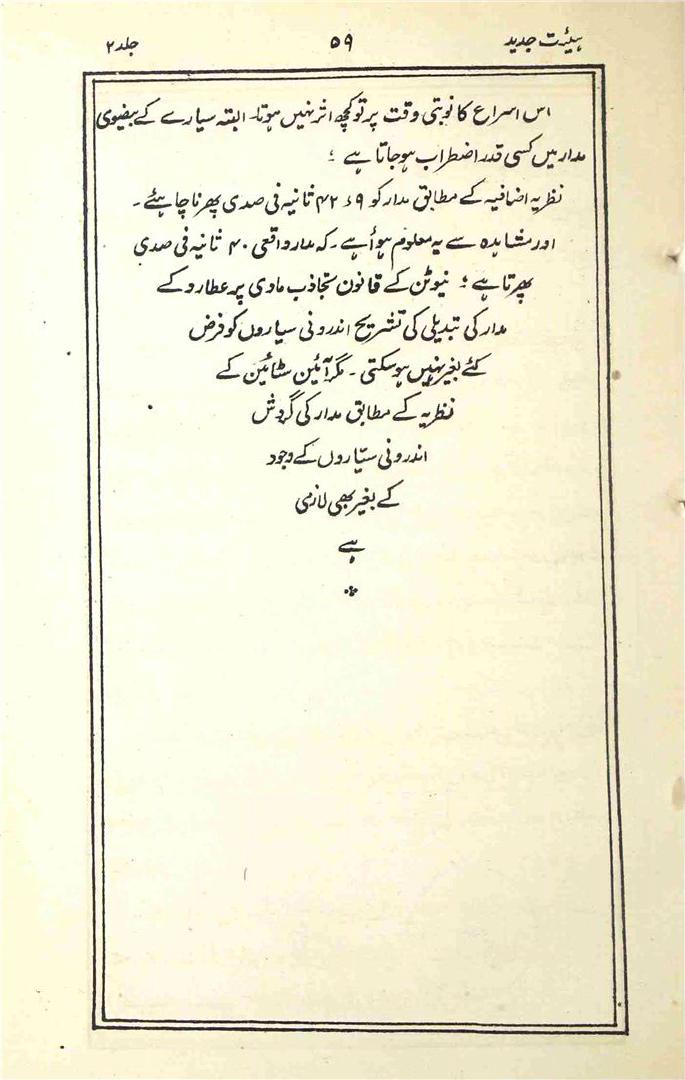 ہیئت جدید ۵۹ جلد ۲
اس اسراع کا نوبتی وقت پر تو کچھ اثر نہیں ہوتا۔ البتہ سیارے کے بیضوی
مدار میں کسی قدر اضطراب ہو جاتا ہے ؛
نظریہ اضافیہ کے مطابق مدار کو ۹ء۴۲ ثانیہ فی صدی پھرنا چاہئے۔
اور مشاہدہ سے یہ معلوم ہوأ ہے۔ کہ مدار واقعی ۴۰ ثانیہ فی صدی
پھرتا ہے ؛ نیوٹن کے قانون تجاذب مادی پر عطارو کے
مدار کی تبدیلی کی تشریح اندرونی سیاروں کو فرض
کئے بغیر نہیں ہو سکتی۔ مگر آئین سٹائین کے
نظریہ کے مطابق مدار کی گردش
اندرونی سیّاروں کے وجود
کے بغیر بھی لازمی
ہے